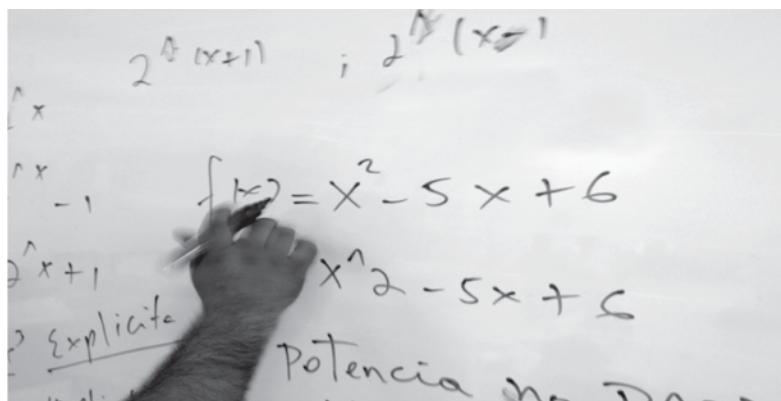 2^(x+1) ; 2^(x-1
^x
^x -1
2^x+1
f(x) = x² - 5x + 6
x^2 - 5x + 6
Explicita
Potencia no